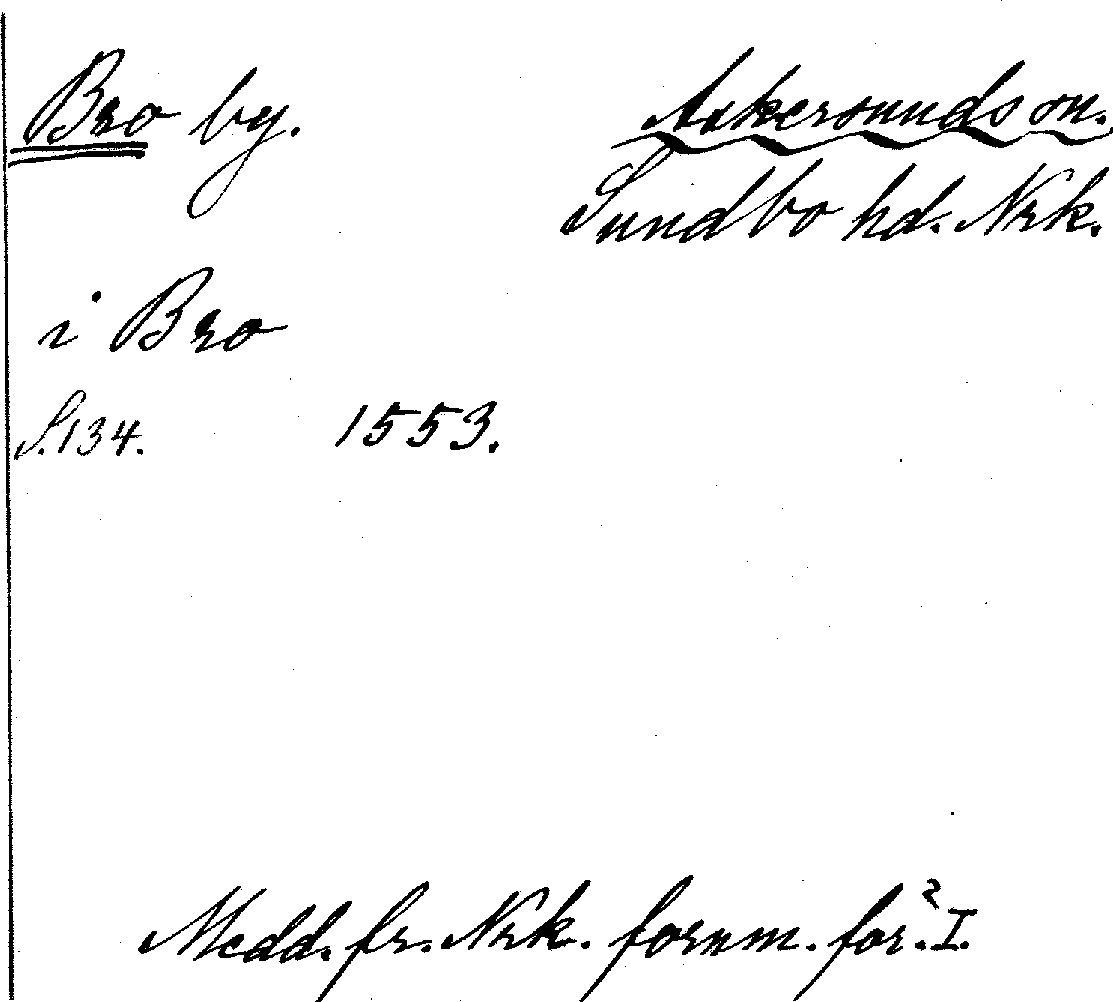 Bro by.
Askersunds sn.
Sundbo hd. Nrk.
i Bro
S. 134. 1553.
Medd. fr. Nrk. fornm. för. I.